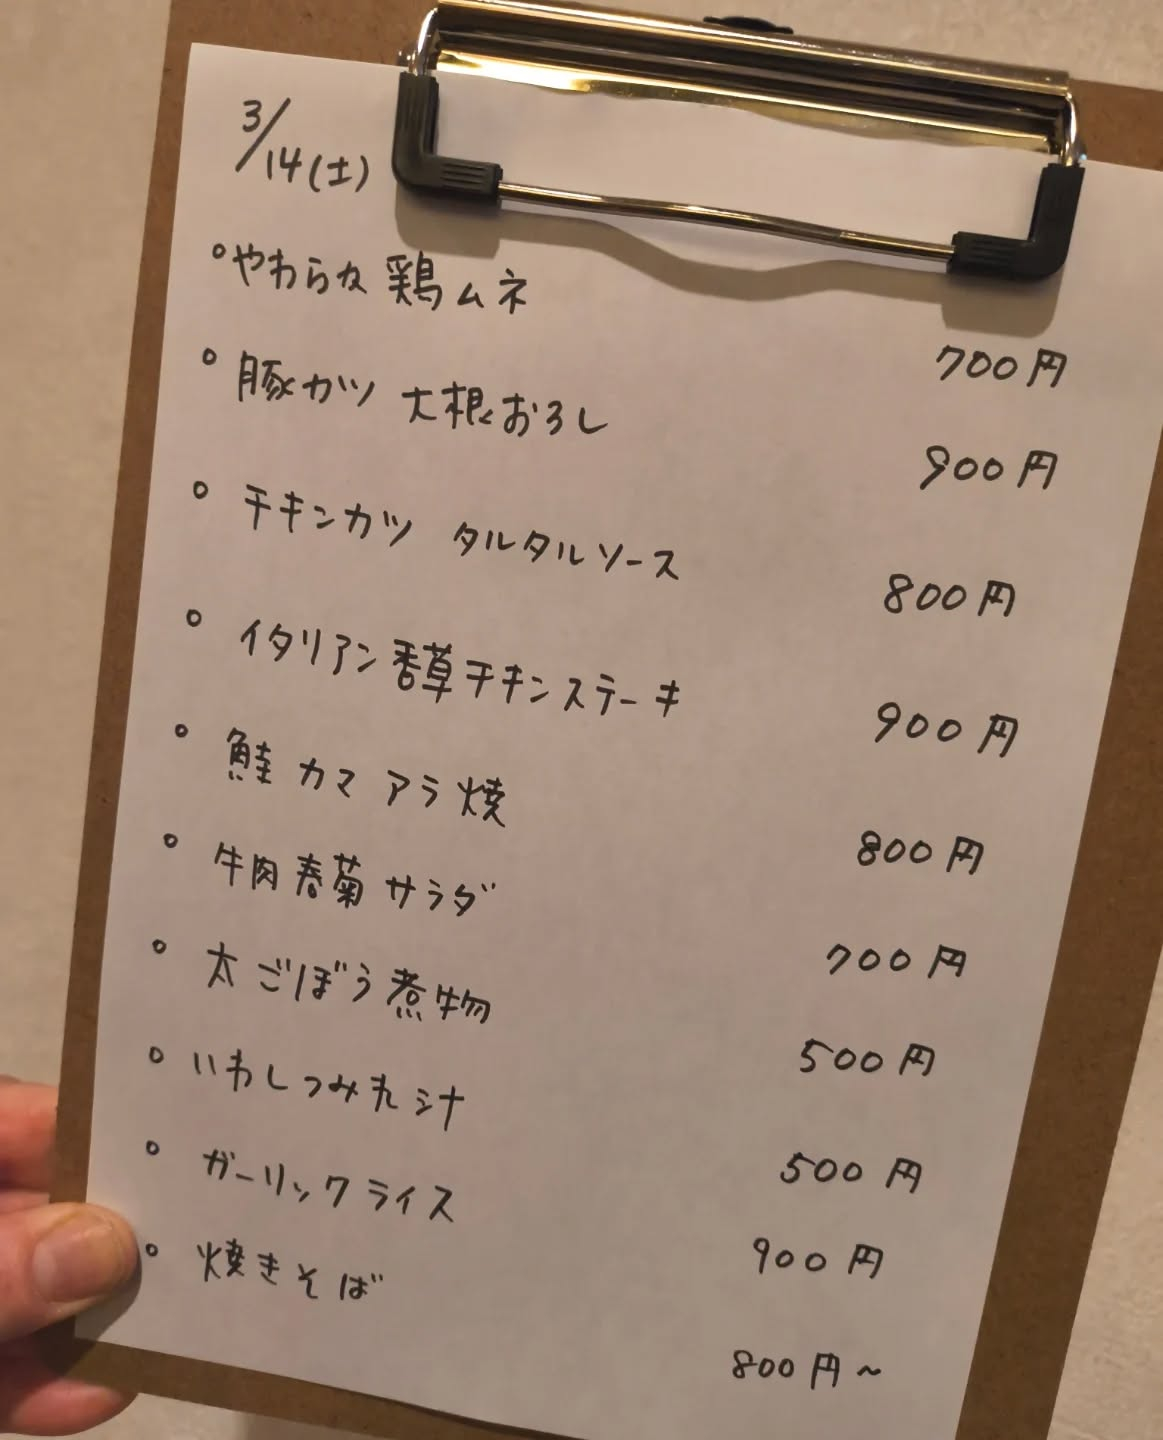 3/14(土)
°やわらな 鶏ムネ 700円
° 豚カツ 大根おろし 900円
° チキンカツ タルタルソース 800円
° イタリアン香草チキンステーキ 900円
° 鮭カマ アラ焼 800円
° 牛肉春菊サラダ 700円
° 太ごぼう煮物 500円
° いわしつみれ汁 500円
° ガーリックライス 900円
° 焼きそば 800円~